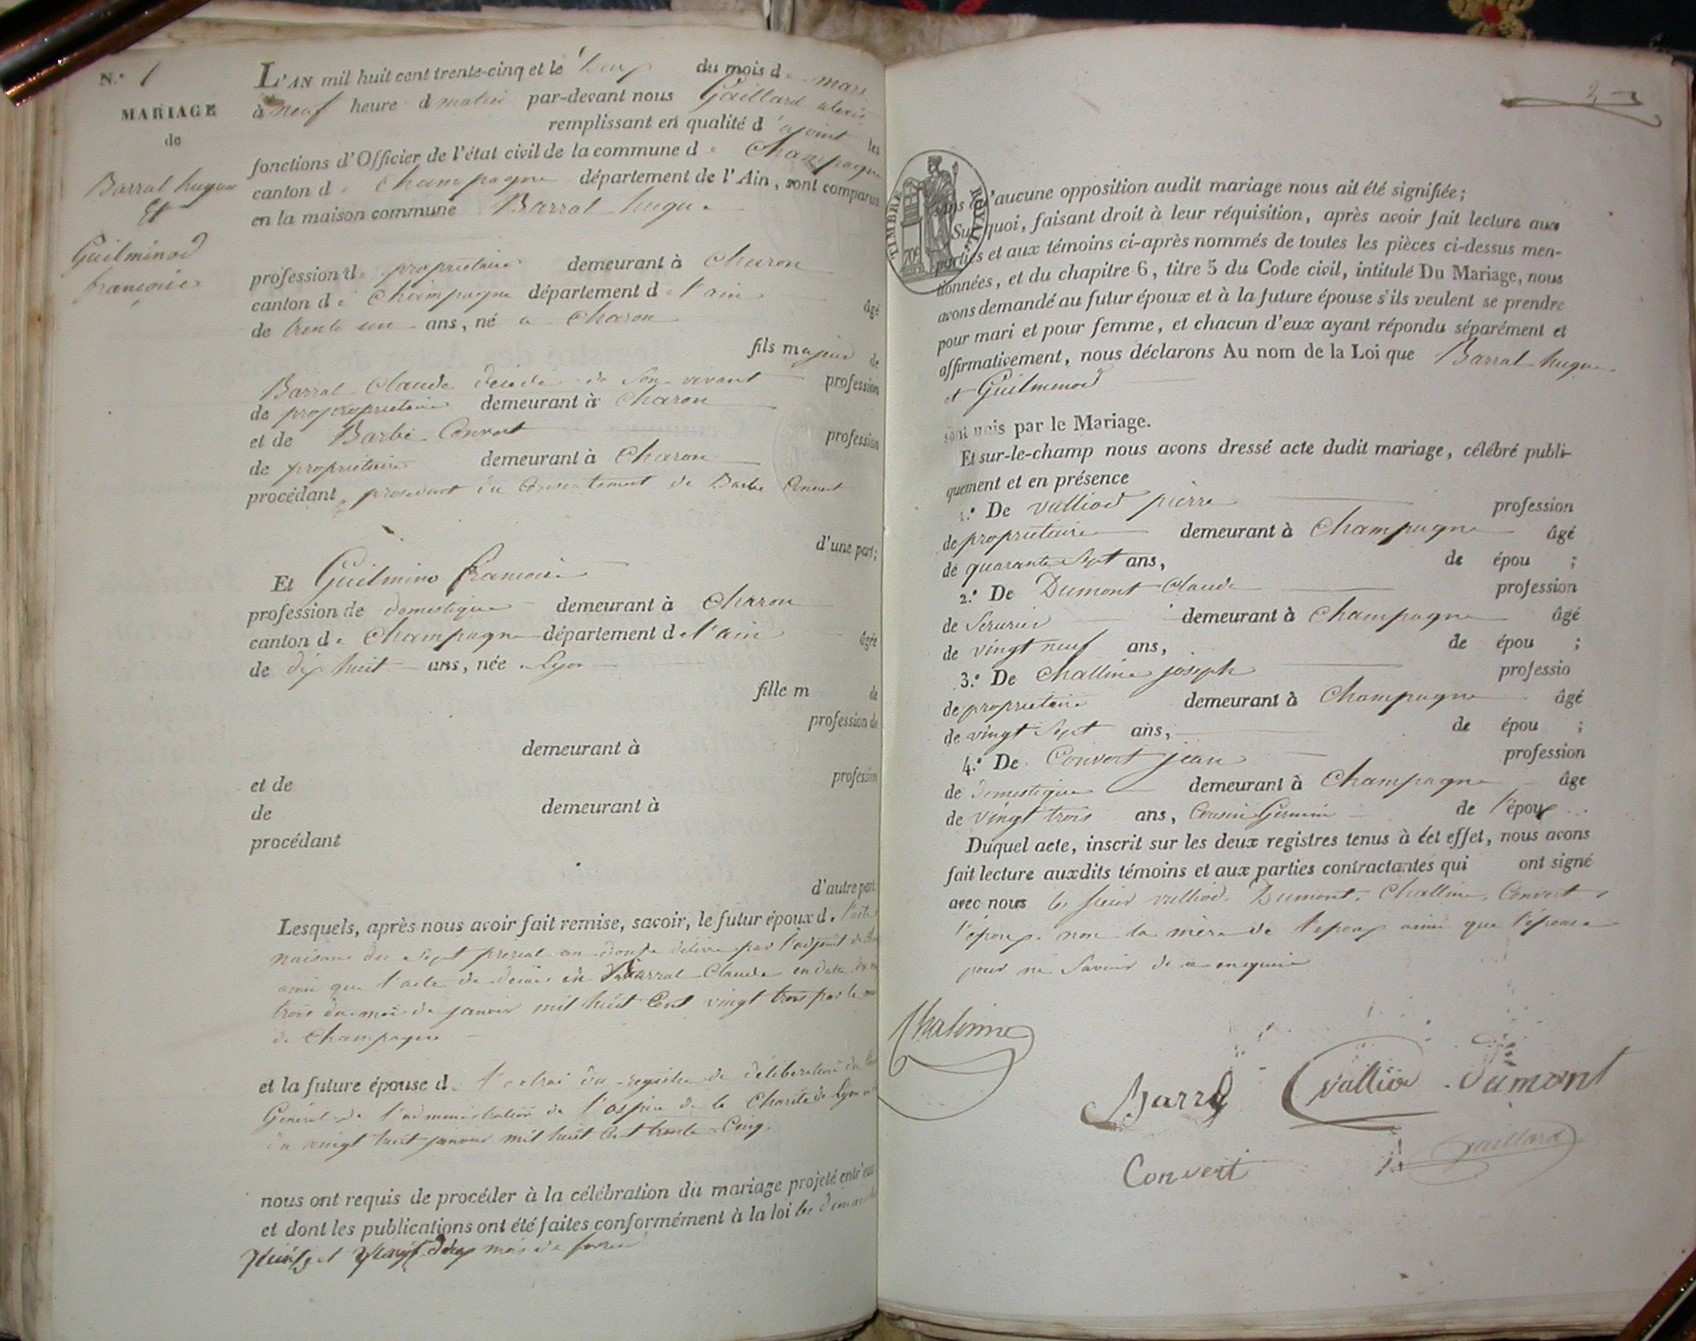 N.° 1
MARIAGE
de
Barral hugue
Et
Guilminod
francoise
L'AN mil huit cent trente-cinq et le deux du mois d mars
à neuf heure d matin par-devant nous Gaillard alexis
remplissant en qualité d'ajoint les
fonctions d'Officier de l'état civil de la commune de Champagne
canton de Champagne département de l'Ain, sont comparus
en la maison commune Barral hugue
profession de proprietaire demeurant à Charon
canton de Champagne département de l'ain âgé
de trente un ans, né a Charon
fils majeur de
Barral Claude décédé de son vivant profession
de proproprietaire demeurant à Charon
et de Barbe Convert profession
de proprietaire demeurant à Charon
procédant procedant du Consentement de Barbe Convert
d'une part;
Et Guilmino francoise
profession de domestique demeurant à Charon
canton de Champagne département de l'ain âgée
de dix huit ans, née Lyon
fille m de
profession de
demeurant à
et de profession
de demeurant à
procédant
d'autre part
Lesquels, après nous avoir fait remise, savoir, le futur époux d. l'acte
naisance du sept prerial an douze délivré par l'adjoint
ainsi que l'acte de décès de Barral Claude en date du
trois du mois de janvier mil huit Cent vingt trois par le
de Champagne
et la future épouse d. l'extrai du registre de déliberation du
Général de l'administration de l'ospice de la Charité de Lyon
du vingt huit janvier mil huit Cent trente Cinq.
nous ont requis de procéder à la célébration du mariage projeté entr'eux
et dont les publications ont été faites conformément à la loi les dimanche
Quinze et vingt deux mois de fevrier
2
TIMBRE ROYAL
sans qu'aucune opposition audit mariage nous ait été signifiée;
Sur quoi, faisant droit à leur réquisition, après avoir fait lecture aux
parties et aux témoins ci-après nommés de toutes les pièces ci-dessus men-
tionnées, et du chapitre 6, titre 5 du Code civil, intitulé Du Mariage, nous
avons demandé au futur époux et à la future épouse s'ils veulent se prendre
pour mari et pour femme, et chacun d'eux ayant répondu séparément et
affirmativement, nous déclarons Au nom de la Loi que Barral hugue
et Guilminod
sont unis par le Mariage.
Et sur-le-champ nous avons dressé acte dudit mariage, célébré publi-
quement et en présence
1.° De vulliod pierre profession
de proprietaire demeurant à Champagne âgé
de quarante sept ans, de épou ;
2.° De Dumont Claude profession
de Serurier demeurant à Champagne âgé
de vingt neuf ans, de épou ;
3.° De Challine joseph professio
de proprietaire demeurant à Champagne âgé
de vingt sept ans, de épou ;
4.° De Convert jean profession
de domestique demeurant à Champagne âge
de vingt trois ans, Cousin Germain de l'époux
Duquel acte, inscrit sur les deux registres tenus à cet effet, nous avons
fait lecture auxdits témoins et aux parties contractantes qui ont signé
avec nous les sieur vulliod. Dumont. Challine. Convert,
l'époux. non la mère de l'epoux ainsi que l'épouse
pour ne Savoir de ce enquise
Chalinne
Barral
vulliod
Dumont
Convert
Gaillard